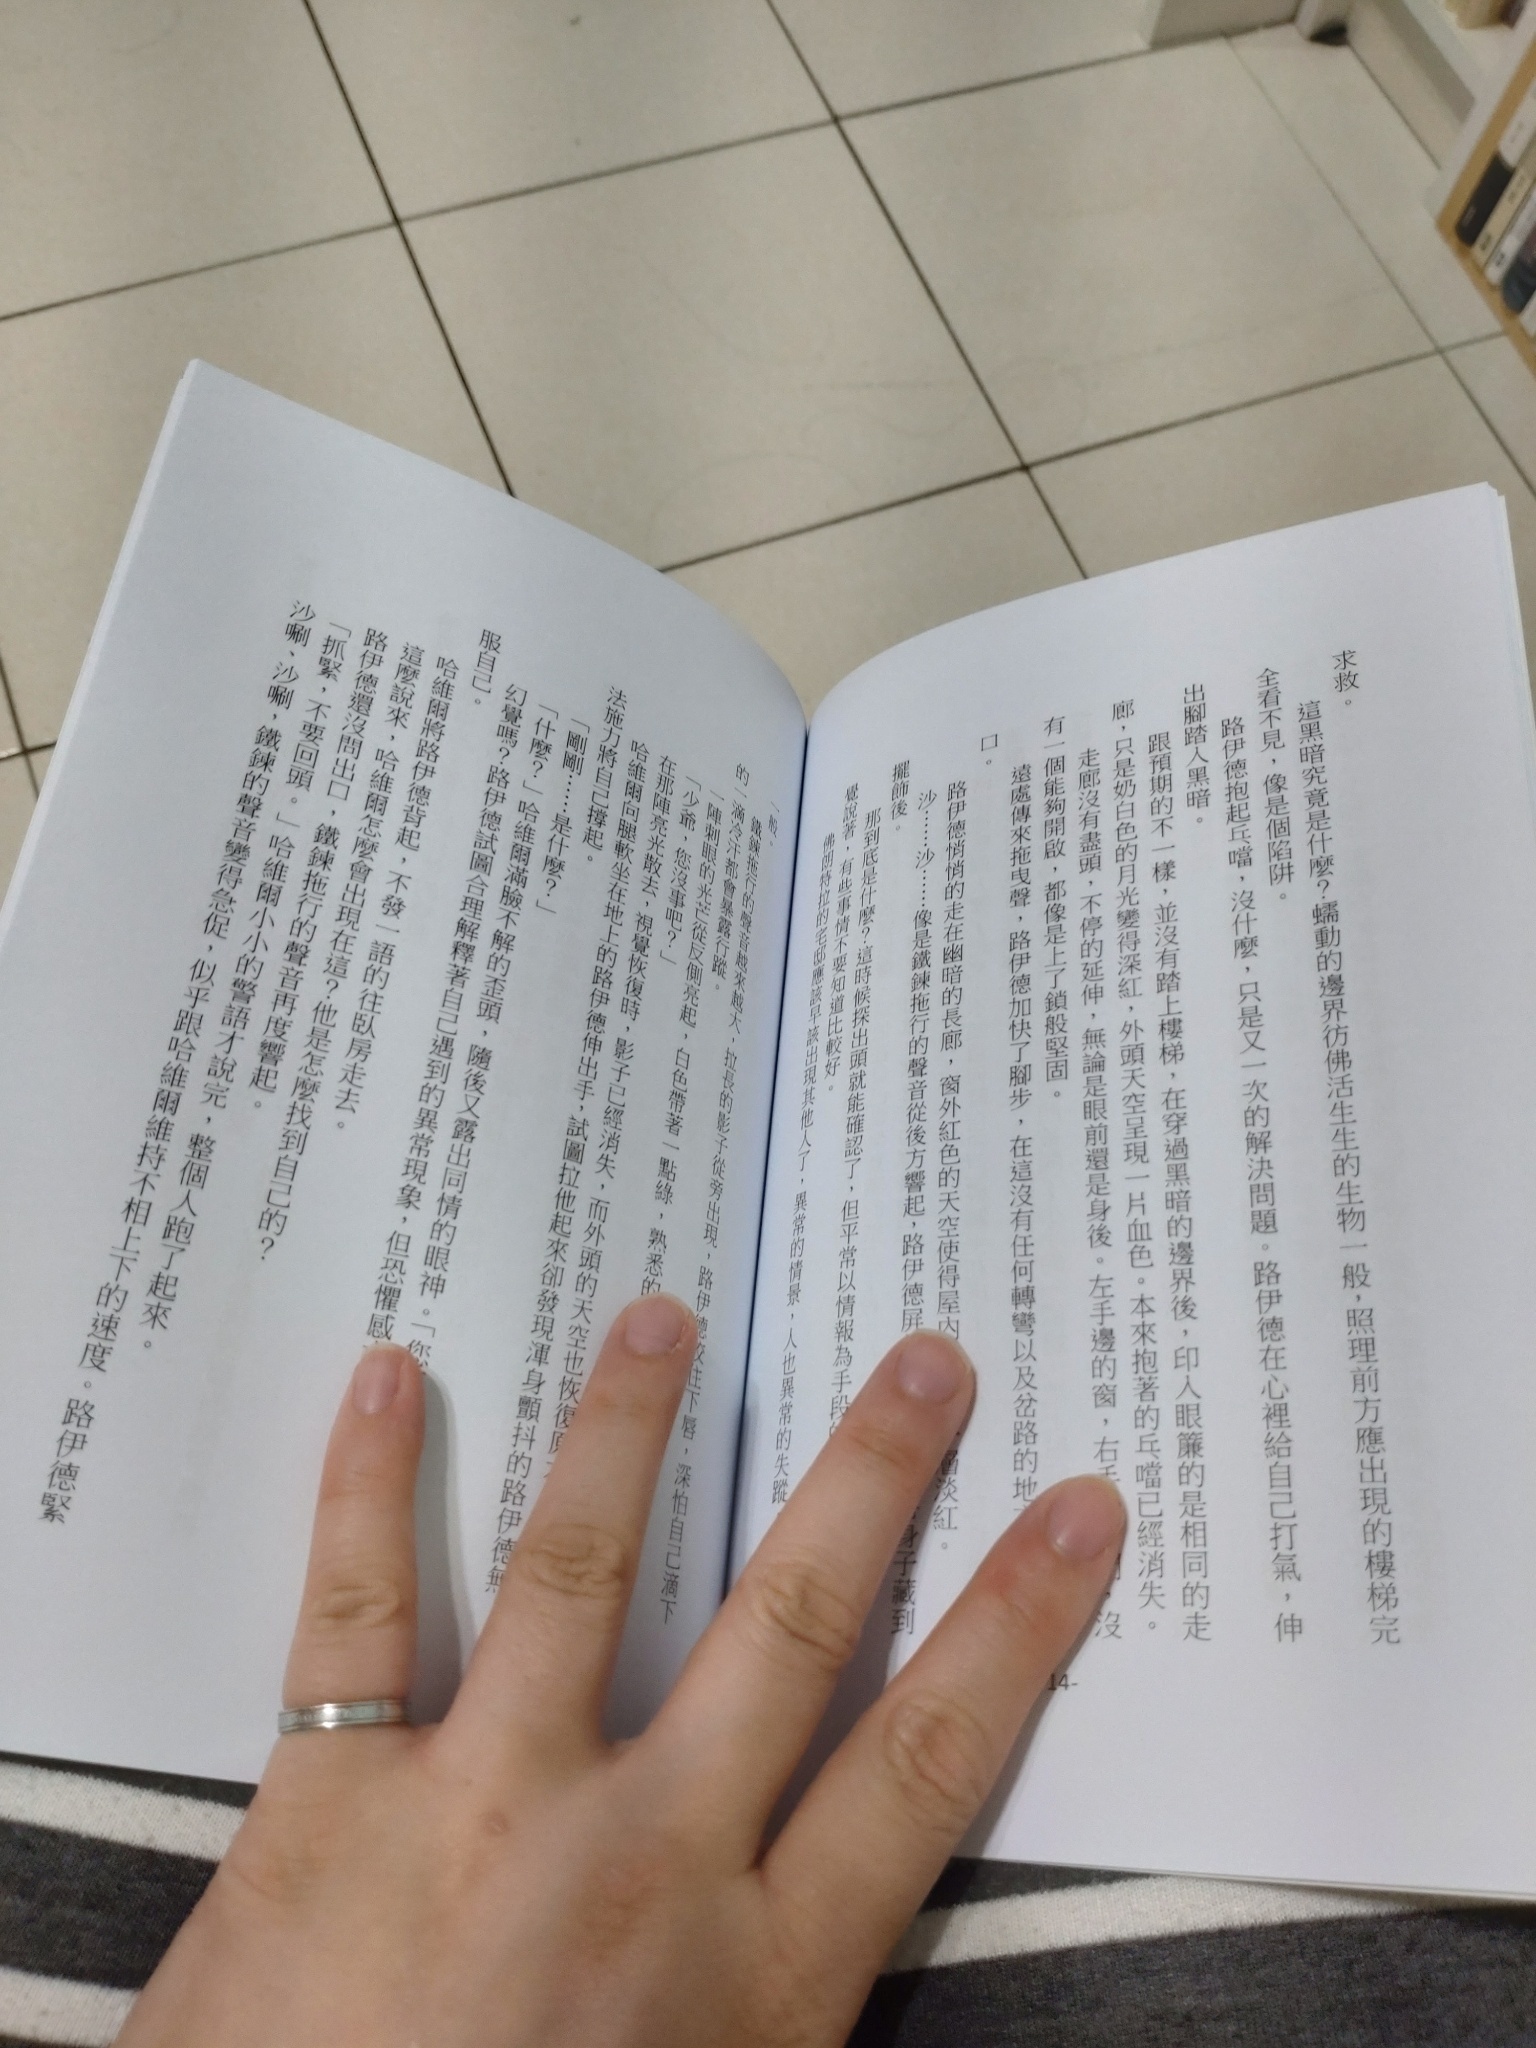 求救。
這黑暗究竟是什麼？蠕動的邊界彷彿活生生的生物一般，照理前方應出現的樓梯完
全看不見，像是個陷阱。
路伊德抱起乓噹，沒什麼，只是又一次的解決問題。路伊德在心裡給自己打氣，伸
出腳踏入黑暗。
跟預期的不一樣，並沒有踏上樓梯，在穿過黑暗的邊界後，印入眼簾的是相同的走
廊，只是奶白色的月光變得深紅，外頭天空呈現一片血色。本來抱著的乓噹已經消失。
走廊沒有盡頭，不停的延伸，無論是眼前還是身後。左手邊的窗，右 ，沒
有一個能夠開啟，都像是上了鎖般堅固。
遠處傳來拖曳聲，路伊德加快了腳步，在這沒有任何轉彎以及岔路的地
口。
路伊德悄悄的走在幽暗的長廊，窗外紅色的天空使得屋內 層淡紅。
沙……沙……像是鐵鍊拖行的聲音從後方響起，路伊德屏 身子藏到
擺飾後。
那到底是什麼？這時候探出頭就能確認了，但平常以情報為手段的
覺說著，有些事情不要知道比較好。
佛朗特拉的宅邸應該早該出現其他人了，異常的情景，人也異常的失蹤
一般。
鐵鍊拖行的聲音越來越大，拉長的影子從旁出現，路伊德咬住下唇，深怕自己滴下
的一滴冷汗都會暴露行蹤。
一陣刺眼的光芒從反側亮起，白色帶著一點綠，熟悉的
「少爺，您沒事吧？」
在那陣亮光散去，視覺恢復時，影子已經消失，而外頭的天空也恢復原
哈維爾向腿軟坐在地上的路伊德伸出手，試圖拉他起來卻發現渾身顫抖的路伊德無
法施力將自己撐起。
「剛剛……是什麼？」
「什麼？」哈維爾滿臉不解的歪頭，隨後又露出同情的眼神。「您
幻覺嗎？路伊德試圖合理解釋著自己遇到的異常現象，但恐懼感
服自己。
哈維爾將路伊德背起，不發一語的往臥房走去。
這麼說來，哈維爾怎麼會出現在這？他是怎麼找到自己的？
路伊德還沒問出口，鐵鍊拖行的聲音再度響起。
「抓緊，不要回頭。」哈維爾小小的警語才說完，整個人跑了起來。
沙唰、沙唰，鐵鍊的聲音變得急促，似乎跟哈維爾維持不相上下的速度。路伊德緊
14-